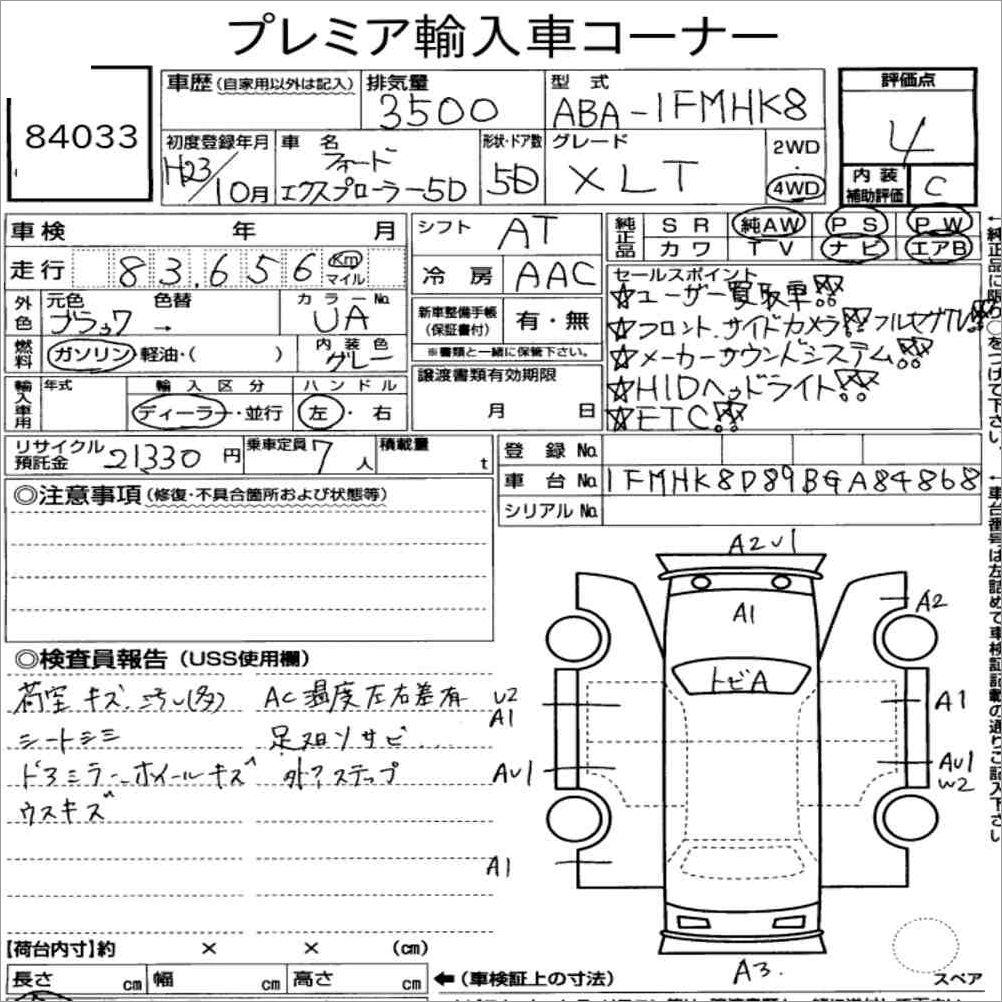 プレミア輸入車コーナー
84033
車歴(自家用以外は記入)
排気量
3500
型式
ABA-1FMHK8
評価点
4
初度登録年月
H23/10月
車名
フォード
エクスプローラー5D
形状・ドア数
5D
グレード
XLT
2WD
・
4WD
内装
補助評価
C
車検 年 月
シフト
AT
純正品
SR 純AW PS PW
カワ TV ナビ エアB
走行
83,656
Km
マイル
冷房
AAC
セールスポイント
☆ユーザー買取車!!
☆フロント.サイドカメラ!!フルセグTV!!
☆メーカーサウンドシステム!!
☆HIDヘッドライト!!
☆ETC!!
外色
元色
ブラック
色替
→
カラーNo.
UA
新車整備手帳
(保証書付)
有・無
※書類と一緒に保管下さい。
燃料
ガソリン・軽油・( )
内装色
グレー
輸入車用
年式
輸入区分
ディーラー・並行
ハンドル
左・右
譲渡書類有効期限
月 日
リサイクル
預託金
21330円
乗車定員
7人
積載量
t
登録No.
車台No.
1FMHK8D89BGA84868
シリアルNo.
◎注意事項(修復・不具合箇所および状態等)
◎検査員報告(USS使用欄)
荷室キズ.汚レ(多)
シートシミ
ドアミラー.ホイールキズ
ウスキズ
AC温度左右差有
足回リサビ
外?ステップ
A2U1
A1
A2
トビA
U2
A1
A1
AU1
AU1
W2
A1
A3.
スペア
←純正品に限り○をつけて下さい。
←車台番号は左詰めて車検証記載の通りご記入下さい
【荷台内寸】約 × × (cm)
長さ cm 幅 cm 高さ cm
←(車検証上の寸法)